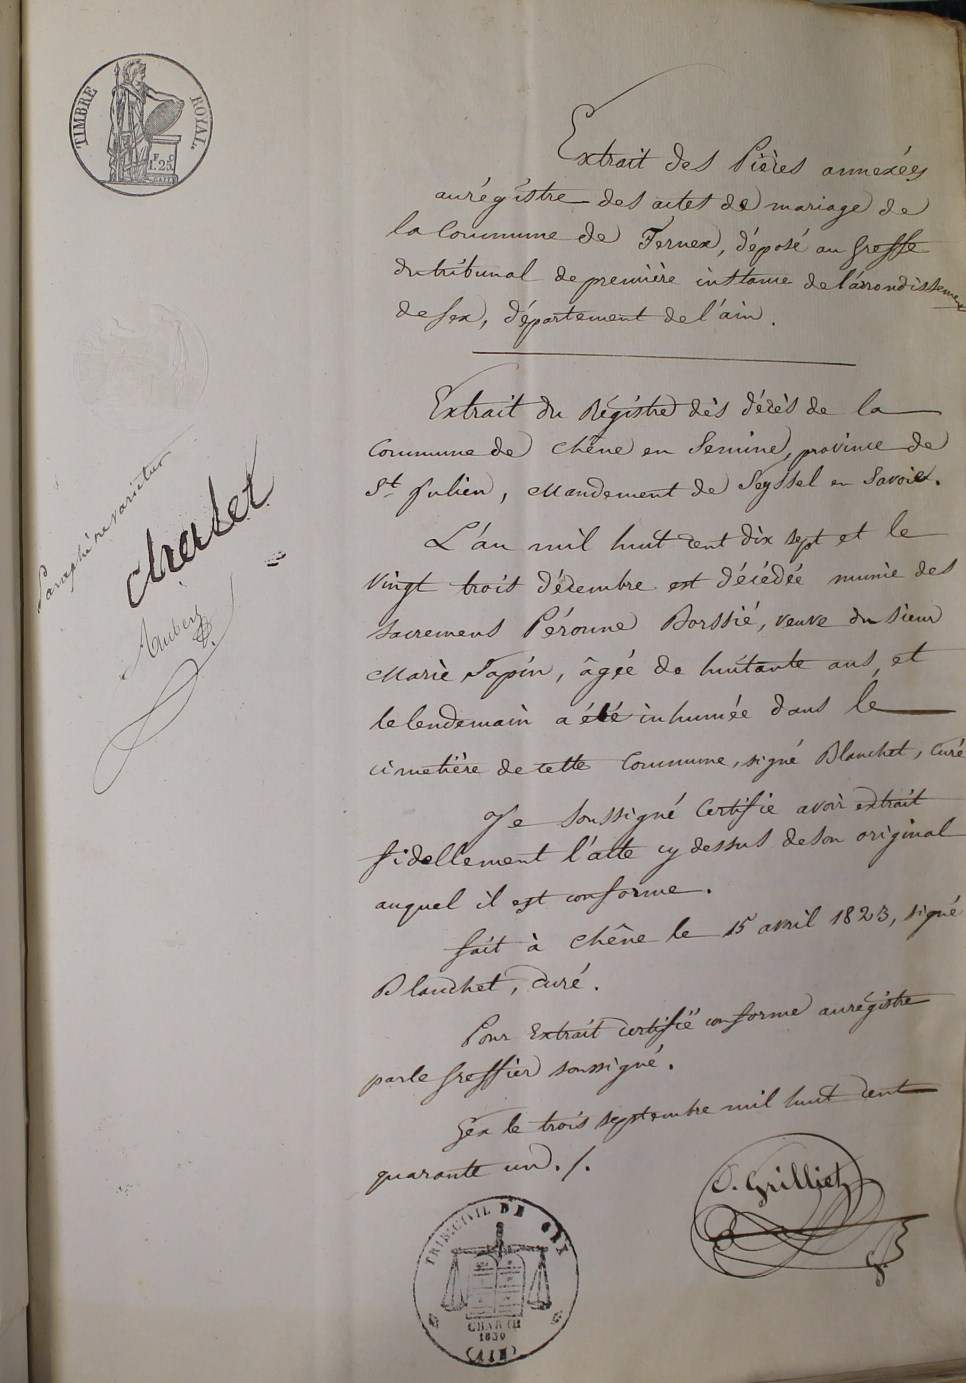 TIMBRE ROYAL
1.F 25.C
Extrait des Pièces annexées
au régistre des actes de mariage de
la Commune de Fernex, déposé au Greffe
du tribunal de première instance de l'arrondissement
de Gex, département de l'ain.
Extrait du Régistre des décès de la
Commune de Chêne en Semine, province de
St Julien, Mandement de Seyssel en Savoie.
L'an mil huit cent dix sept et le
vingt trois décembre est décédée munie des
sacremens Péronne Borssié, veuve du sieur
Marie Tapin, âgée de huitante ans, et
le lendemain a été inhumée dans le
cimetière de cette Commune, signé Blanchet, Curé
Je soussigné Certifie avoir extrait
fidellement l'acte cy dessus de son original
auquel il est conforme.
fait à Chêne le 15 avril 1823, signé
Blanchet, curé.
Pour Extrait certifié conforme au régistre
par le Greffier soussigné.
Gex le trois septembre mil huit cent
quarante un ./.
O. Grilliet
Paraphé ne varietur
Chalet
TRIB. CIVIL DE GEX
CHARTE
1830
(AIN)